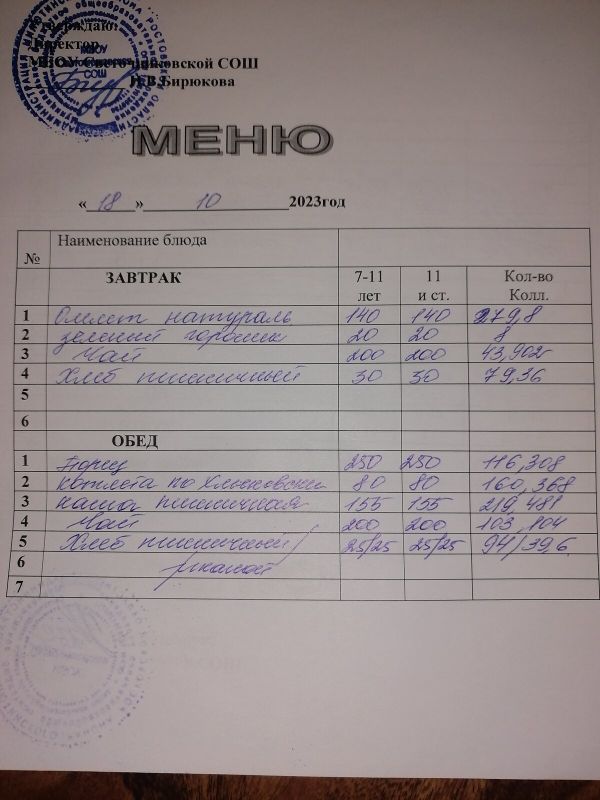 Утверждаю:
Директор
СОШ
Бирюкова
МЕНЮ
« 18 » 10 2023год
№ Наименование блюда
ЗАВТРАК 7-11 лет 11 и ст. Кол-во Колл.
1 Омлет натураль 140 140 279,8
2 зеленый горошек 20 20 8
3 Чай 200 200 43,902
4 Хлеб пшеничный 30 30 79,36
5
6
ОБЕД
1 Борщ 250 250 116,308
2 котлета по 80 80 160,368
3 каша пшеничная 155 155 219,481
4 Чай 200 200 103,104
5 Хлеб пшеничный/ 25/25 25/25 94/39,6
6 ржаной
7